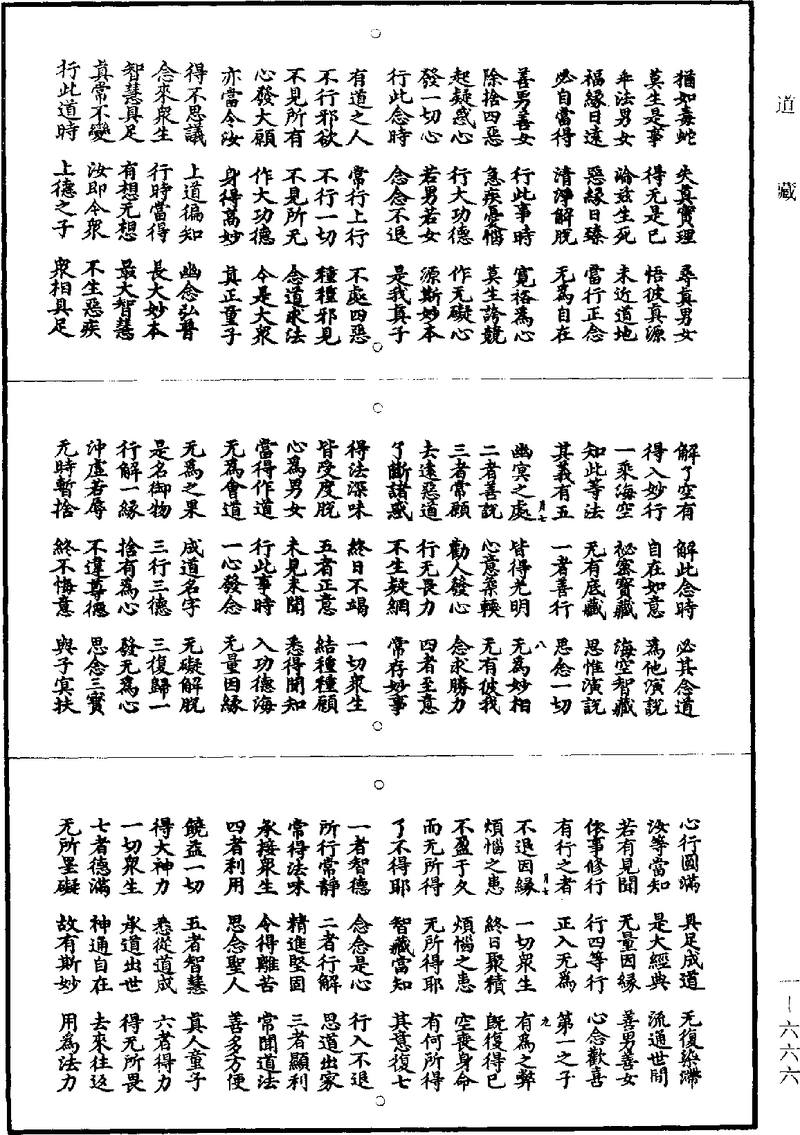 道藏
猶如毒蛇 失真實理 尋真男女
莫生是事 得无是已 悟彼真源
乎法男女 淪兹生死 未近道地
福緣日遠 惡緣日臻 當行正念
必自當得 清淨解脫 无為自在
善男善女 行此事時 寬裕為心
除捨四惡 急疾憂惱 莫生誇競
起疑惑心 行大功德 作无礙心
發一切心 若男若女 源斯妙本
行此念時 念念不退 是我真子
有道之人 常行上行 不處四惡
不行邪欲 不行一切 種種邪見
不見所有 不見所无 念道求法
心發大願 作大功德 令是大衆
亦當令汝 身得高妙 真正童子
得不思議 上道徧知 幽念弘普
念來衆生 行時當得 長大妙本
智慧具足 有想无想 最大智慧
真常不變 汝即令衆 不生惡疾
行此道時 上德之子 衆相具足
解了空有 解此念時 必其念道
得入妙行 自在如意 為他演説
一乘海空 祕密寶藏 海空智藏
知此等法 无有底藏 思惟演説
其義有五 一者善行 思念一切
月七 八
幽冥之處 皆得光明 无為妙相
二者善説 心意柔輭 无有彼我
三者常願 勸人發心 念求勝力
去遠惡道 行无畏力 四者至意
了斷諸惑 不生疑網 常存妙事
得法深味 終日不竭 一切衆生
皆受度脫 五者正意 結種種願
心為男女 未見未聞 悉得聞知
當得作道 行此事時 入功德海
无為會道 一心發念 无量因緣
无為之果 成道名字 无礙解脫
是名御物 三行三德 三復歸一
行解一緣 捨有為心 發无為心
沖虛若辱 不違尊德 思念三寶
无時暫捨 終不悔意 與子冥扶
心行圓滿 具足成道 无復染滯
汝等當知 是大經典 流通世間
若有見聞 无量因緣 善男善女
依事修行 行四等行 心念歡喜
有行之者 正入无為 第一之子
月七 九
不退因緣 一切衆生 有為之弊
煩惱之患 終日聚積 既復得已
不盈于久 煩惱之患 空喪身命
而无所得 无所得耶 有何所得
了不得耶 智藏當知 其意復七
一者智德 念念是心 行入不退
所行常靜 二者行解 思道出家
常得法味 精進堅固 三者顯利
承接衆生 令得離苦 常聞道法
四者利用 思念聖人 善多方便
饒益一切 五者智慧 真人童子
得大神力 悉從道成 六者得力
一切衆生 承道出世 得无所畏
七者德滿 神通自在 去來往返
无所罣礙 故有斯妙 用為法力
一－六六六